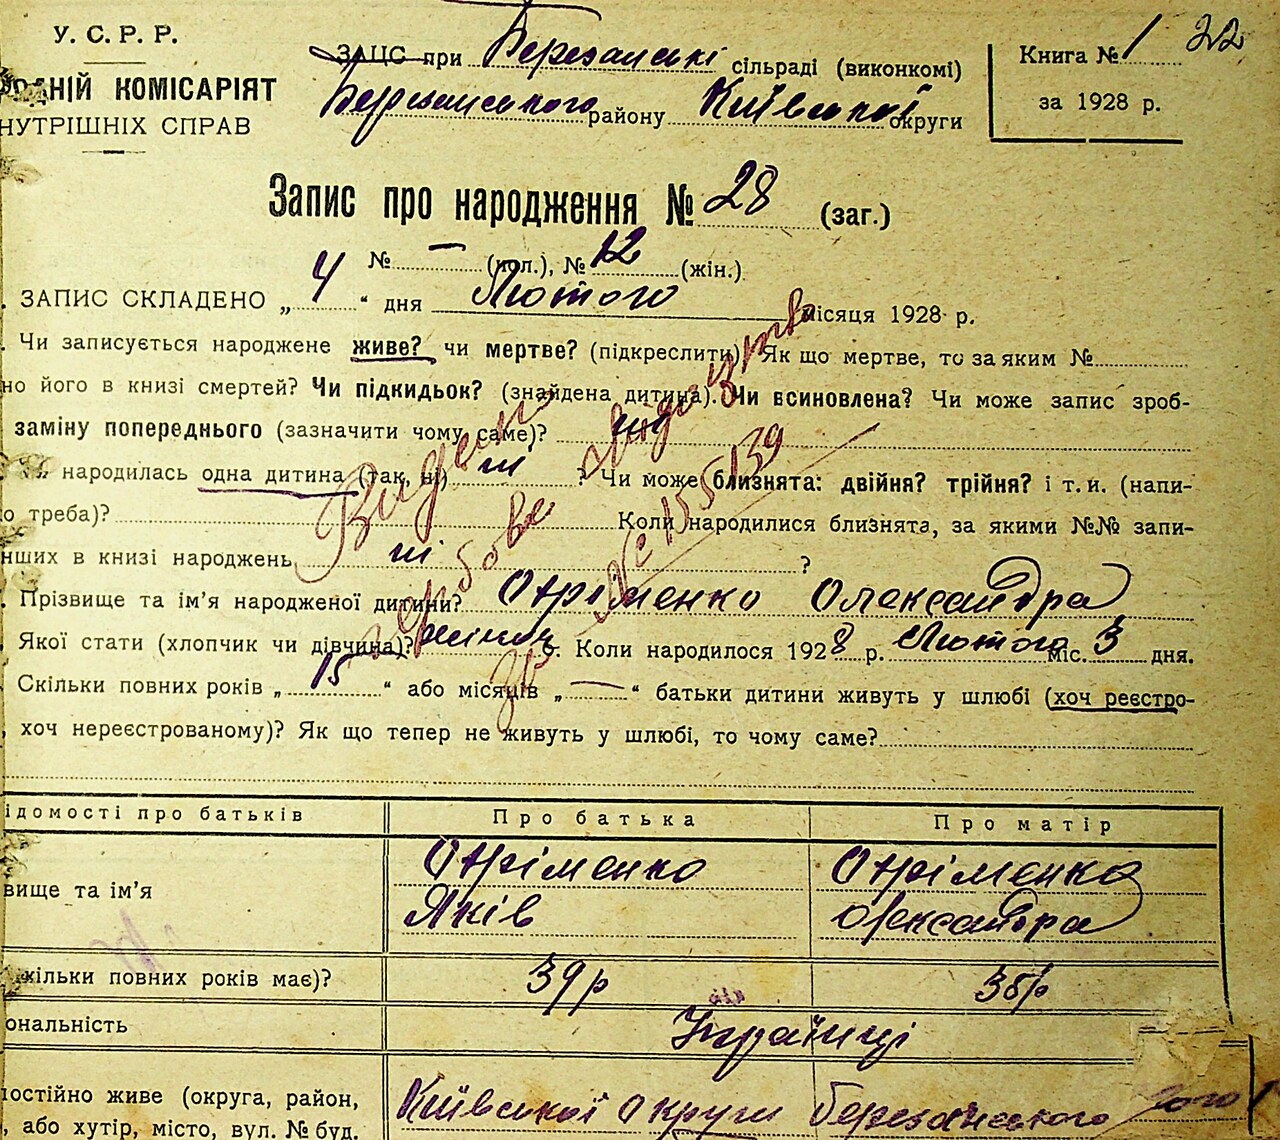 У. С. Р. Р.
КОМІСАРІЯТ
НУТРІШНІХ СПРАВ
ЗАЦС при Березанські сільраді (виконкомі)
Березанського району Київської округи
Книга № 1 22
за 1928 р.
Запис про народження № 28 (заг.)
№ — (чол.), № 12 (жін.)
ЗАПИС СКЛАДЕНО „ 4 “ дня Лютого місяця 1928 р.
Чи записується народжене живе? чи мертве? (підкреслити) Як що мертве, то за яким №
но його в книзі смертей? Чи підкидьок? (знайдена дитина). Чи всиновлена? Чи може запис зроб-
заміну попереднього (зазначити чому саме)? ні
народилась одна дитина (так, ні) ні ? Чи може близнята: двійня? трійня? і т. и. (напи-
о треба)? Коли народилися близнята, за якими №№ запи-
нших в книзі народжень ні ?
Прізвище та ім’я народженої дитини? Олександра
Якої стати (хлопчик чи дівчина)? 6. Коли народилося 1928 р. Лютого міс. 3 дня.
Скільки повних років „ 15 “ або місяців „ — “ батьки дитини живуть у шлюбі (хоч реєстро-
хоч нереєстрованому)? Як що тепер не живуть у шлюбі, то чому саме?
ідомості про батьків Про батька Про матір
вище та ім’я
Яків Олександра
кільки повних років має)? 39 р
ональність Українці
постійно живе (округа, район, Київської округи Березанського
, або хутір, місто, вул. № буд.